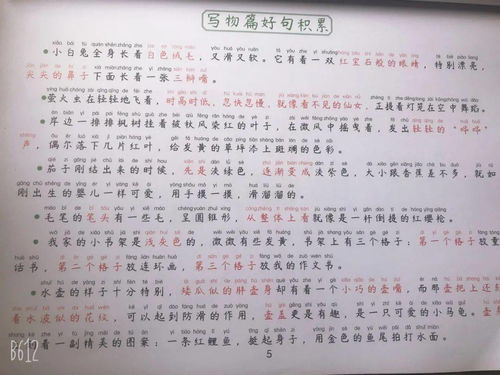 写物篇好句积累
小白兔全身长着白色绒毛，又滑又软。它有着一双红宝石般的眼睛，特别漂亮，
尖尖的鼻子下面长着一张三瓣嘴。
萤火虫在轻轻地飞着，时高时低，忽快忽慢，就像看不见的仙女，正提着灯笼在空中舞蹈。
岸边一排排枫树挂着被秋风染红的叶子，在微风中摇曳着，发出轻轻的“哗哗”
声，偶尔落下几片红叶，给发黄的草坪添上斑斓的色彩。
茄子刚结出来的时候，先是淡绿色，逐渐变成淡紫色，大小跟鸡蛋差不多，就如
刚出生的婴儿一样可爱，用手摸一摸，滑溜溜的。
毛笔的笔头有一些毛，呈圆锥形，从整体上看就像是一杆倒提的红缨枪。
我家的小书架是浅灰色的，微微有些发黄，书架上有三个格子：第一个格子放童
话书，第二个格子放连环画，第三个格子放我的作文书。
水壶的样子十分特别，矮瓜似的胖壶身却有着一个小巧的壶嘴，而那壶把上还
着水波似的花纹，可以起到防滑的作用，壶盖更是有趣，是一只可爱的小乌龟。壶
着一副精美的图案：一条红鲤鱼，挺起身子，用金色的鱼尾拍打水面。
5
B612